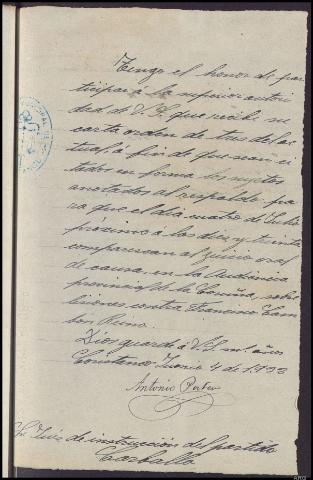 Tengo el honor de par
ticipar á la superior autori
dad de V.S. que recibí su
carta orden de tres del ac
tual, á fin de que sean ci
tados en forma los sujetos
anotados al respaldo pa
ra que el dia cuatro de Julio
próximo á las diez y treinta
comparezcan al juicio oral
de causa, en la Audiencia
provincial de la Coruña, sobre
lesiones contra Francisco Cam
bon Reino.
Dios guarde á V.S. ms. años
Junio 4 de 1933
Antonio
Sr. Juez de instrucción del partido
Carballo